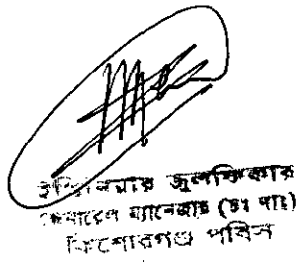 ইঞ্জিনিয়ার জুলফিকার
জেনারেল ম্যানেজার (ভাঃ প্রাঃ)
কিশোরগঞ্জ পবিস